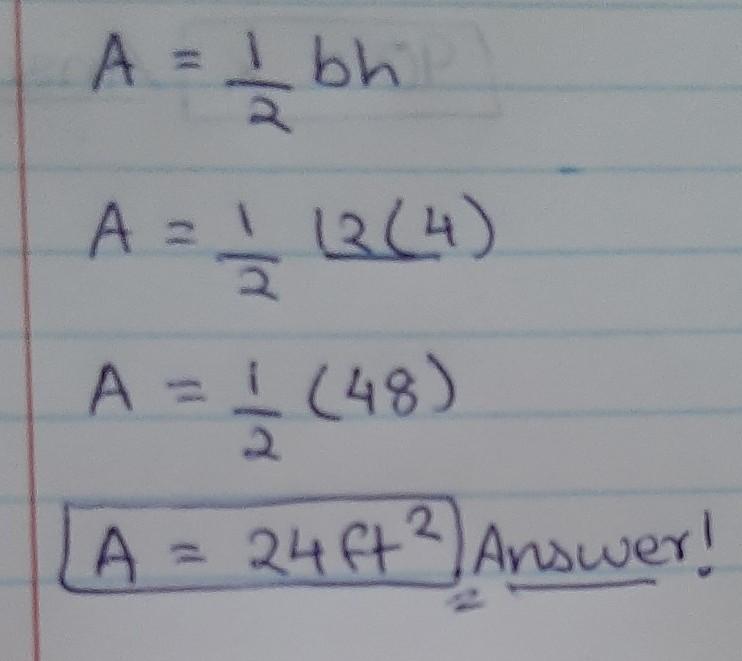 A = 1/2 bh
A = 1/2 12(4)
A = 1/2 (48)
A = 24ft² Answer!